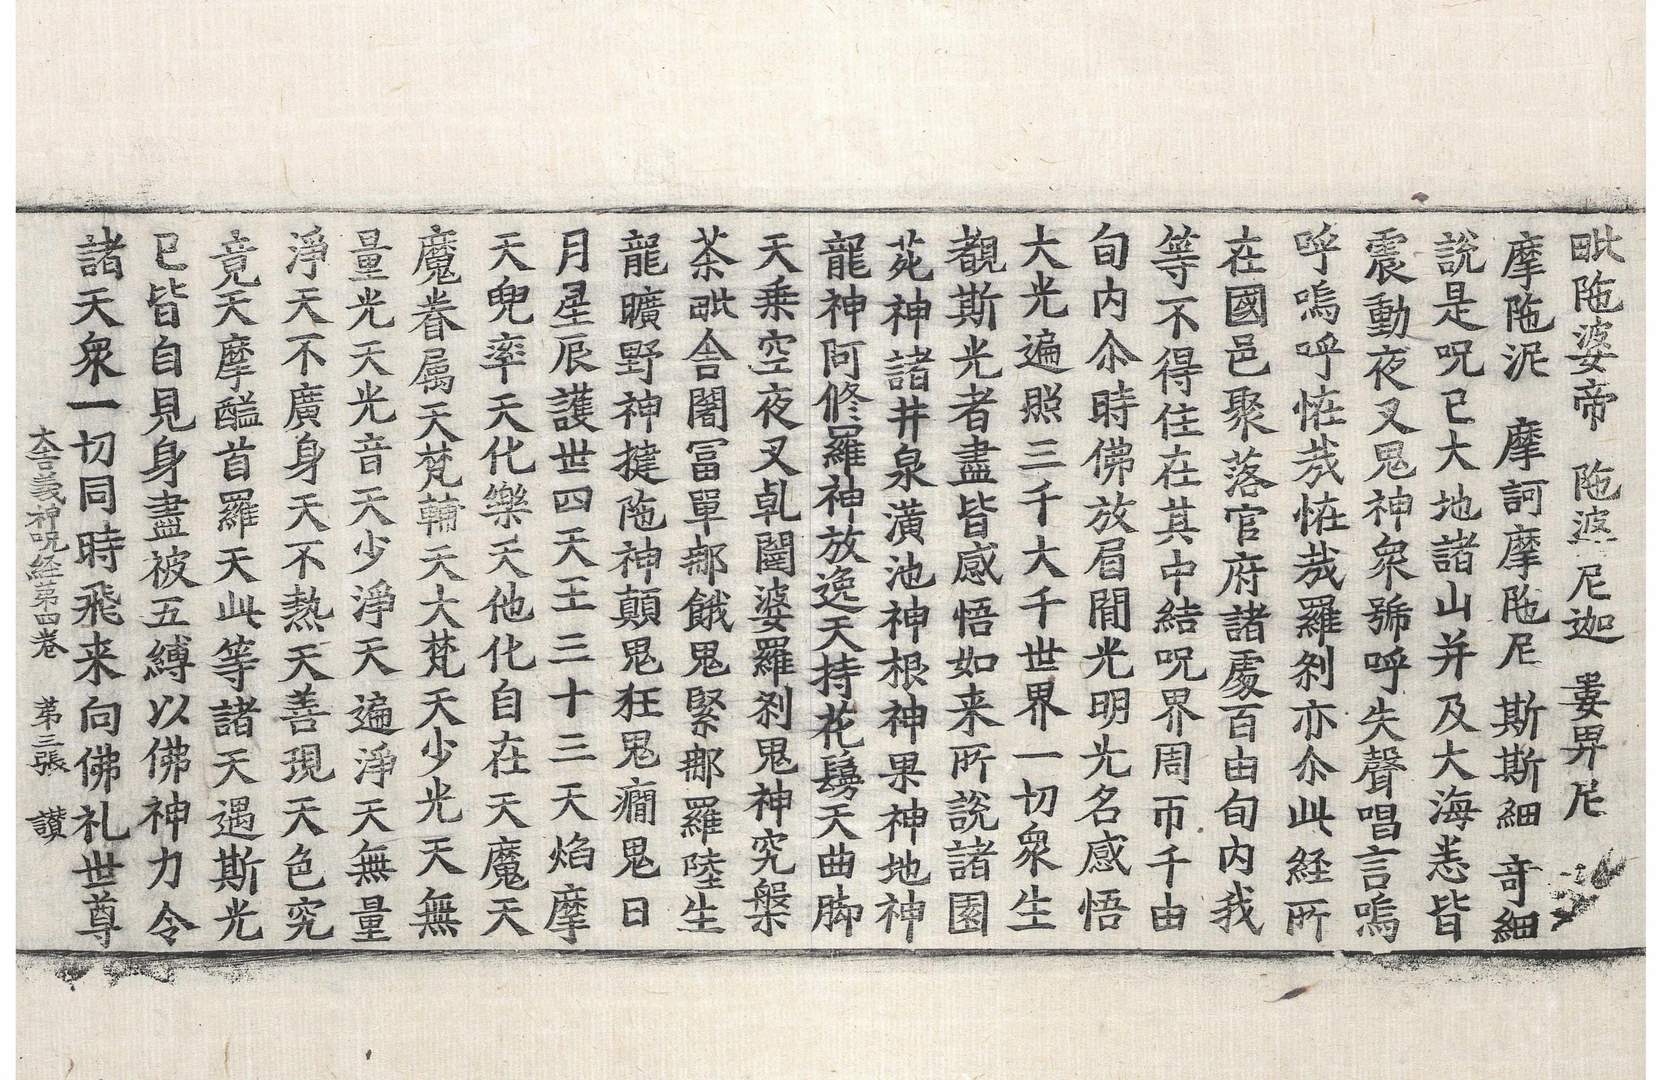 毗陁婆帝　陁婆尼迦　婁畀尼
摩陁泥　摩訶摩陁尼　斯斯細　奇細
說是呪已大地諸山并及大海悉皆
震動夜叉鬼神衆號呼失聲唱言嗚
呼嗚呼恠㢤恠㢤羅剎亦尒此経所
在國邑聚落官府諸處百由旬内我
等不得住在其中結呪界周帀千由
旬内尒時佛放眉間光明光名感悟
大光遍照三千大千世界一切衆生
覩斯光者盡皆感悟如来所說諸園
苑神諸井泉潢池神根神果神地神
龍神阿修羅神放逸天持花鬘天曲脚
天乗空夜叉乹闥婆羅剎鬼神究槃
荼毗舎闍冨單那餓鬼緊那羅陸生
龍曠野神揵陁神顛鬼狂鬼癎鬼日
月星辰護世四天王三十三天焰摩
天兜率天化樂天他化自在天魔天
魔眷屬天梵輔天大梵天少光天無
量光天光音天少淨天遍淨天無量
淨天不廣身天不熱天善現天色究
竟天摩醯首羅天此等諸天遇斯光
已皆自見身盡被五縛以佛神力令
諸天衆一切同時飛来向佛礼世尊
大吉義神呪経第四卷　第三張　讃